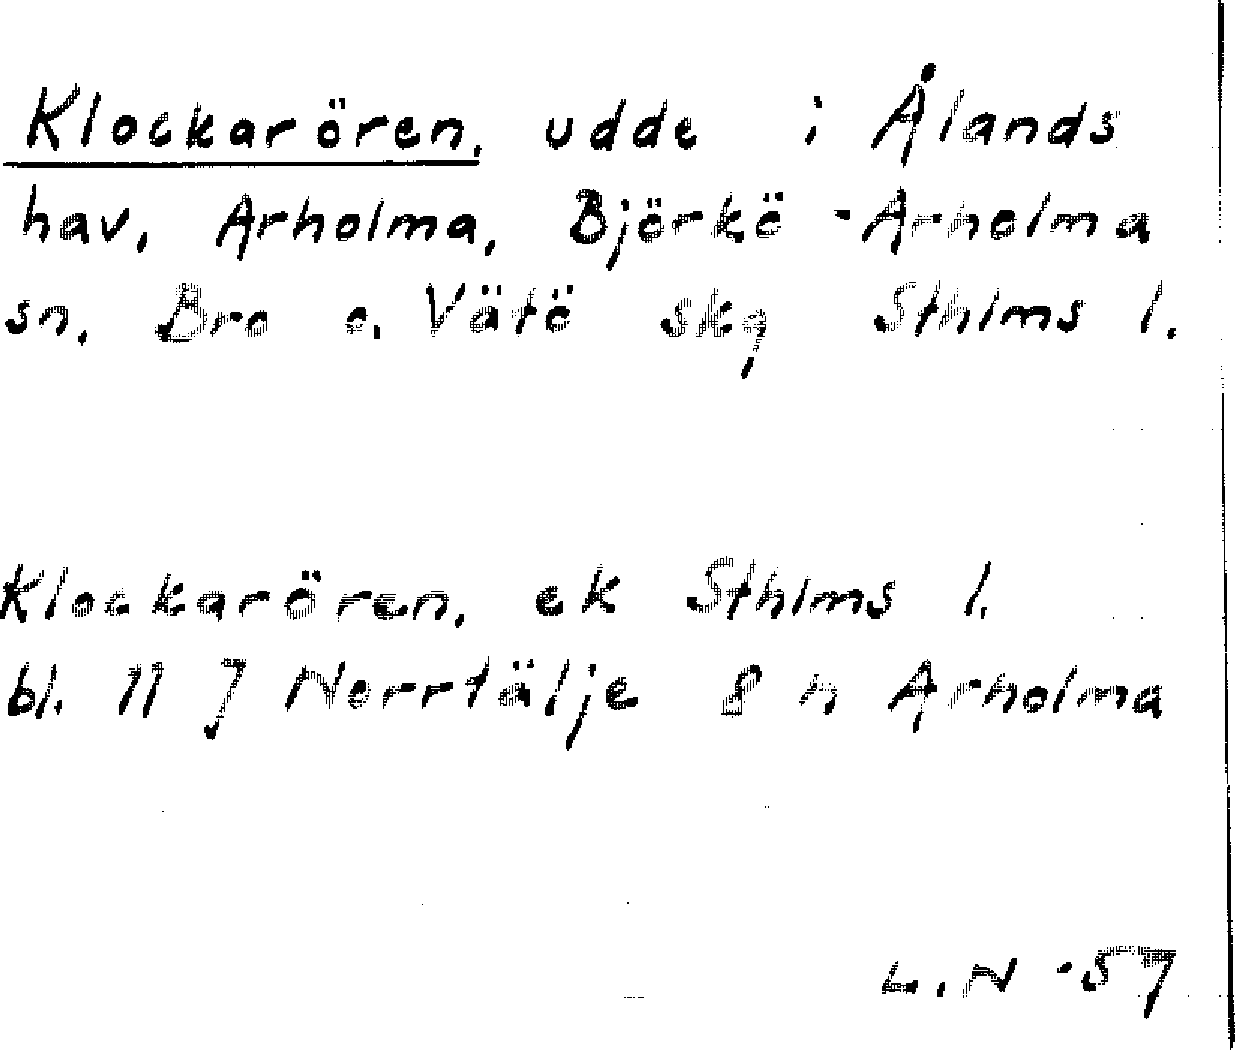 Klockarören, udde i Ålands
hav, Arholma, Björkö-Arholma
sn, Bro o. Vätö skg Sthlms l.
Klockarören, ek Sthlms l.
bl. 11 J Norrtälje 8 h Arholma
L.N -57